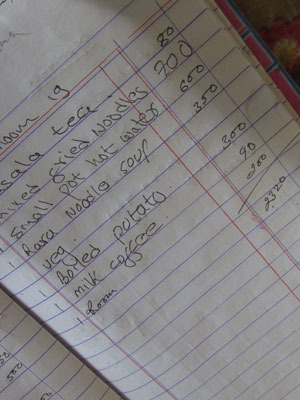 oom 19
sala tea - 80
mixed fried Noodles 700
Small pot hot water 600
Rara Noodle soup 350
veg.
Boiled potato. 300
milk coffee. 90
1 Room 200
2320
500